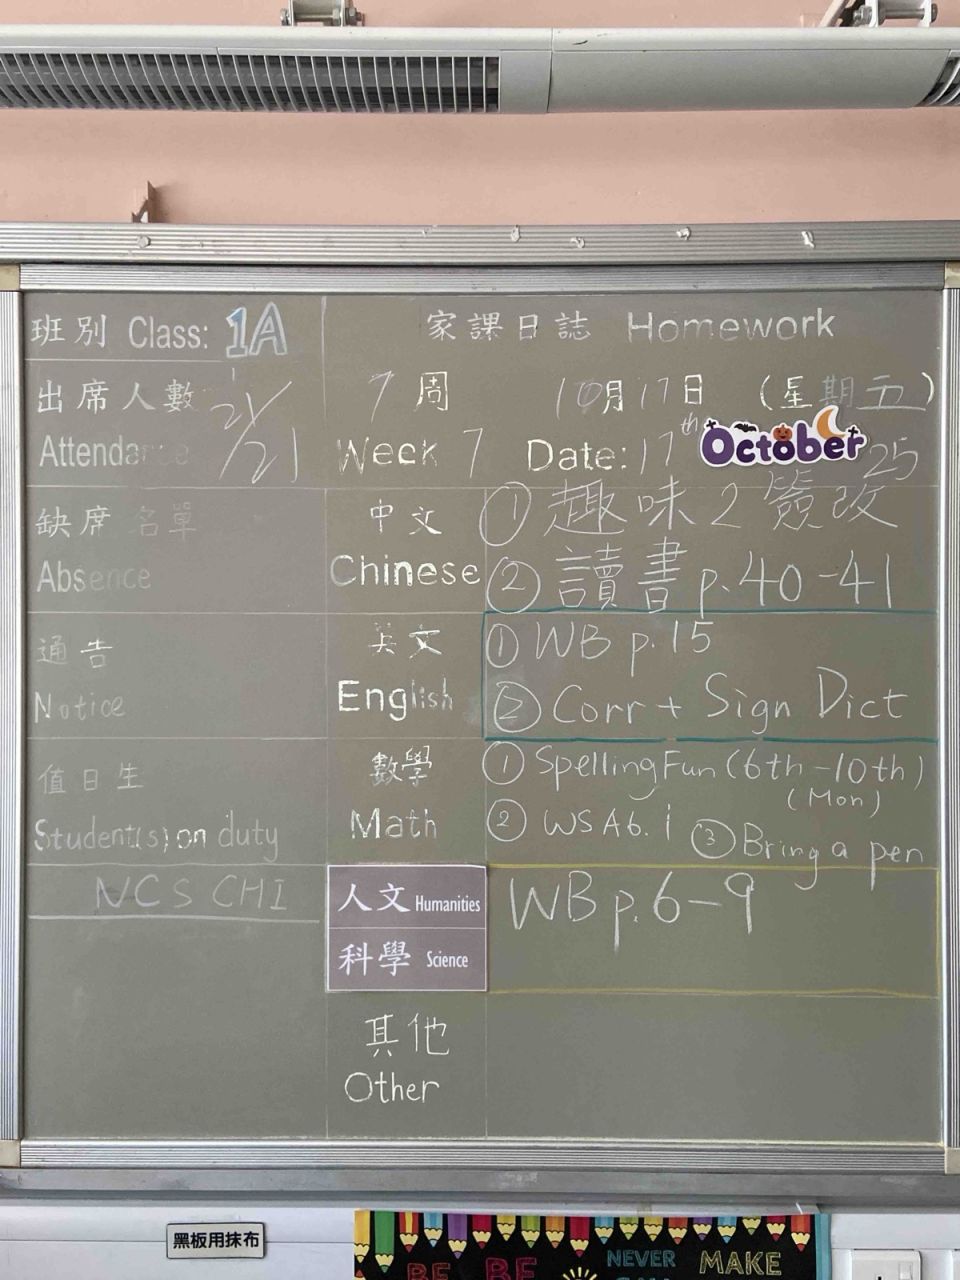 班別 Class: 1A
家課日誌 Homework
出席人數
Attendance 21/21
7周 10月17日 (星期五)
Week 7 Date: 17th October 25
缺席名單
Absence
中文
Chinese
① 趣味2簽改
② 讀書 p.40-41
通告
Notice
英文
English
① WB p.15
② Corr + Sign Dict
值日生
Student(s) on duty
數學
Math
① Spelling Fun (6th-10th)
(Mon)
② WS A6.i ③ Bring a pen
NCS CHI
人文 Humanities
科學 Science
WB p.6-9
其他
Other
黑板用抹布
BE BE NEVER MAKE